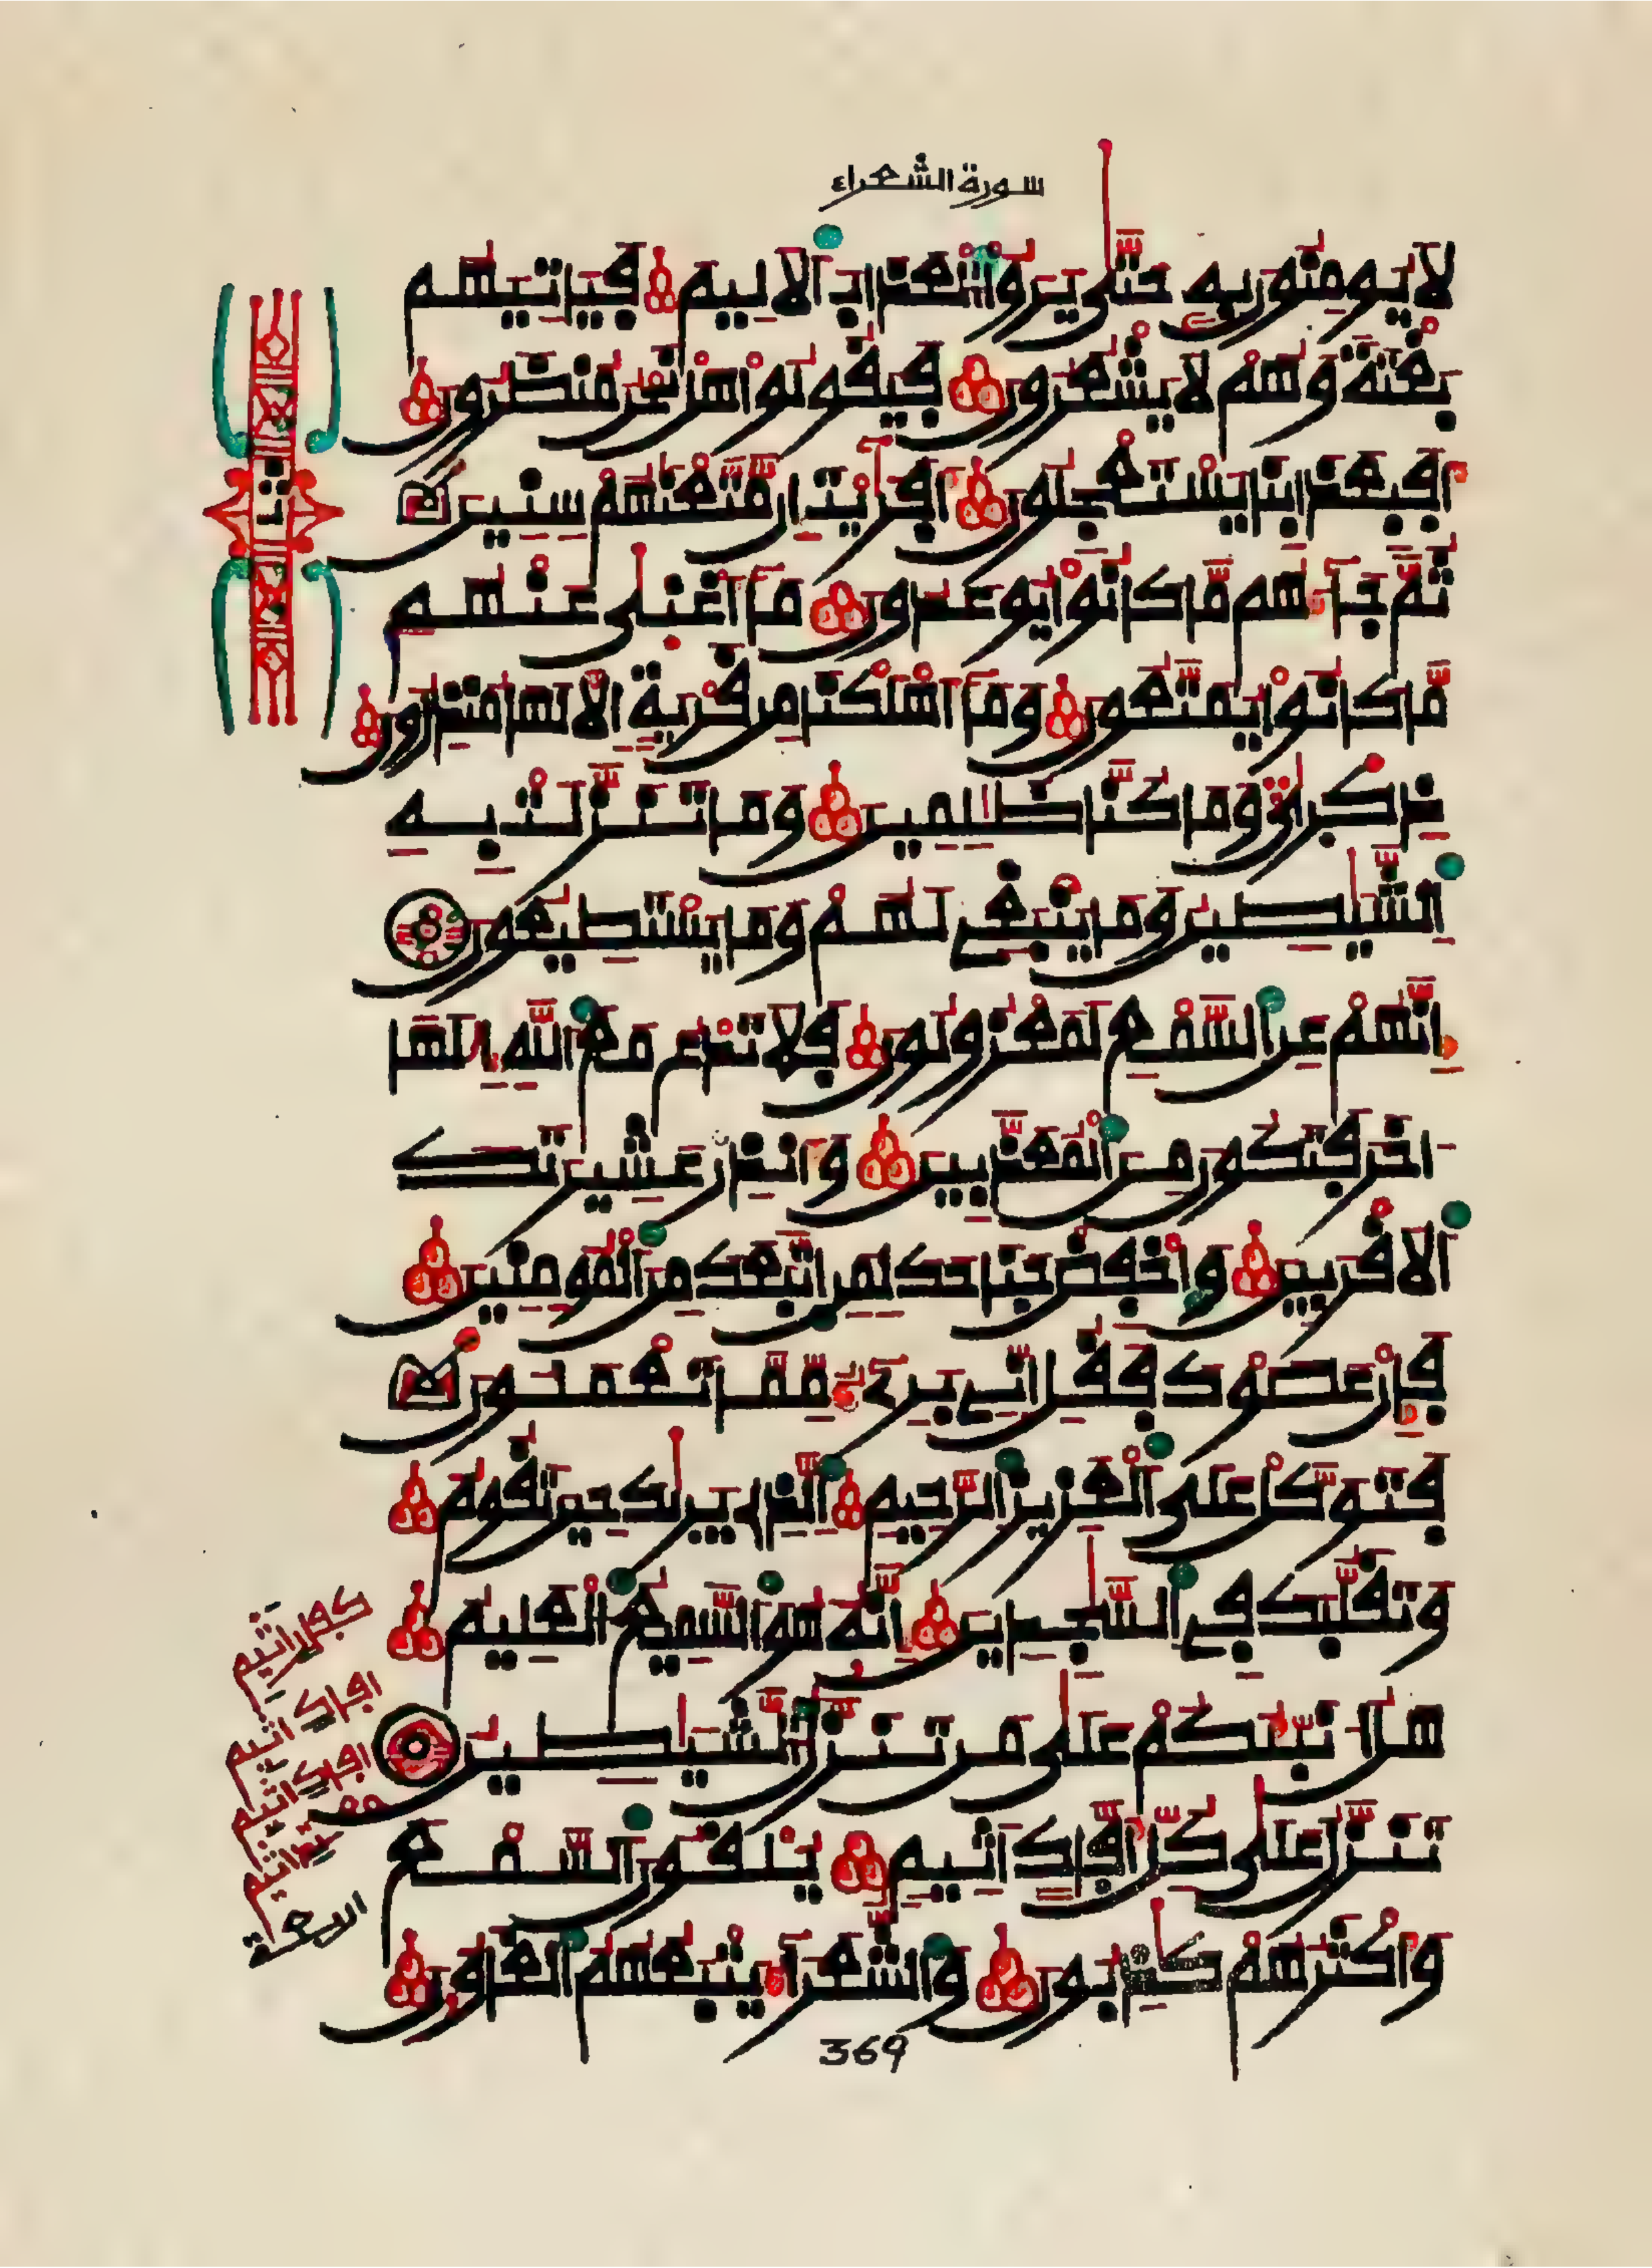 سورة الشعراء
لَا يُومِنُونَ بِهِۦ حَتَّىٰ يَرَوُا۟ الْعَذَابَ الَالِيمَ فَيَاتِيَهُم
بَغْتَةً وَهُمْ لَا يَشْعُرُونَ فَيَقُولُوا۟ هَلْ نَحْنُ مُنظَرُونَ
أَفَبِعَذَابِنَا يَسْتَعْجِلُونَ أَفَرَٰيْتَ إِن مَّتَّعْنَٰهُمْ سِنِينَ
ثُمَّ جَآءَهُم مَّا كَانُوا۟ يُوعَدُونَ مَآ أَغْنَىٰ عَنْهُم
مَّا كَانُوا۟ يُمَتَّعُونَ وَمَآ أَهْلَكْنَا مِن قَرْيَةٍ إِلَّا لَهَا مُنذِرُونَ
ذِكْرَىٰ وَمَا كُنَّا ظَٰلِمِينَ وَمَا تَنَزَّلَتْ بِهِ
الشَّيَٰطِينُ وَمَا يَنۢبَغِے لَهُمْ وَمَا يَسْتَطِيعُونَ
إِنَّهُمْ عَنِ السَّمْعِ لَمَعْزُولُونَ فَلَا تَدْعُ مَعَ اللَّهِ إِلَٰهًا
اخَرَ فَتَكُونَ مِنَ الْمُعَذَّبِينَ وَأَنذِرْ عَشِيرَتَكَ
الَاقْرَبِينَ وَاخْفِضْ جَنَاحَكَ لِمَنِ اتَّبَعَكَ مِنَ الْمُومِنِينَ
فَإِنْ عَصَوْكَ فَقُلِ انِّے بَرِےٓءٌ مِّمَّا تَعْمَلُونَ
فَتَوَكَّلْ عَلَى الْعَزِيزِ الرَّحِيمِ الَّذِے يَرَىٰكَ حِينَ تَقُومُ
وَتَقَلُّبَكَ فِے السَّٰجِدِينَ إِنَّهُۥ هُوَ السَّمِيعُ الْعَلِيمُ
هَلُ انَبِّئُكُمْ عَلَىٰ مَن تَنَزَّلُ الشَّيَٰطِينُ
تَنَزَّلُ عَلَىٰ كُلِّ أَفَّاكٍ اَثِيمٍ يُلْقُونَ السَّمْعَ
وَأَكْثَرُهُمْ كَٰذِبُونَ وَالشُّعَرَآءُ يَتْبَعُهُمُ الْغَاوُۥنَ
369